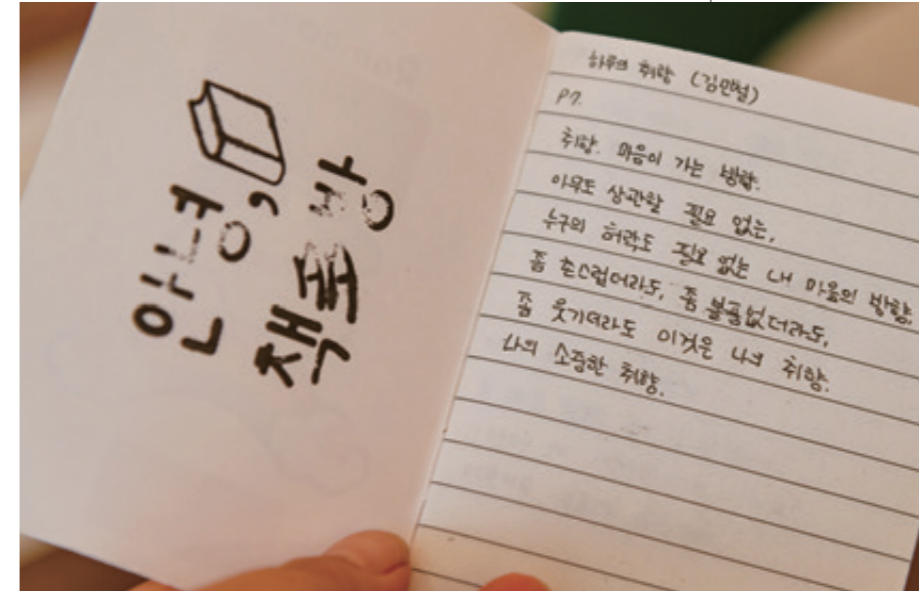 안녕,
책쪼방
하루의 취향 (김민철)
P7.
취향. 마음이 가는 방향.
아무도 상관할 필요 없는,
누구의 허락도 필요 없는 내 마음의 방향.
좀 촌스럽더라도, 좀 볼품없더라도,
좀 웃기더라도 이것은 나의 취향.
나의 소중한 취향.